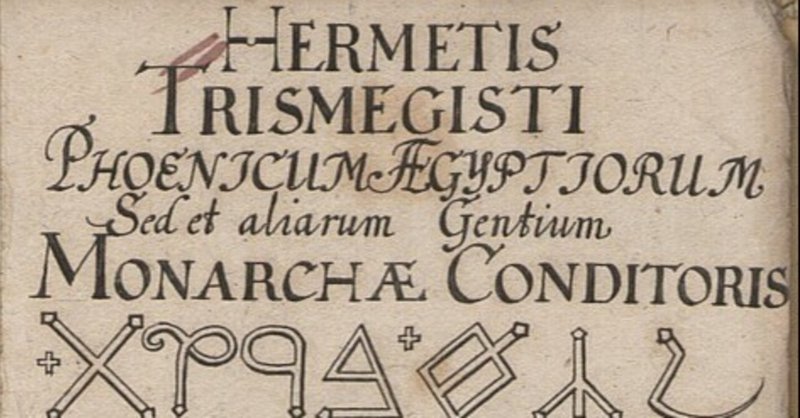 HERMETIS
TRISMEGISTI
PHOENICUM ÆGYPTIORUM
Sed et aliarum Gentium
MONARCHÆ CONDITORIS